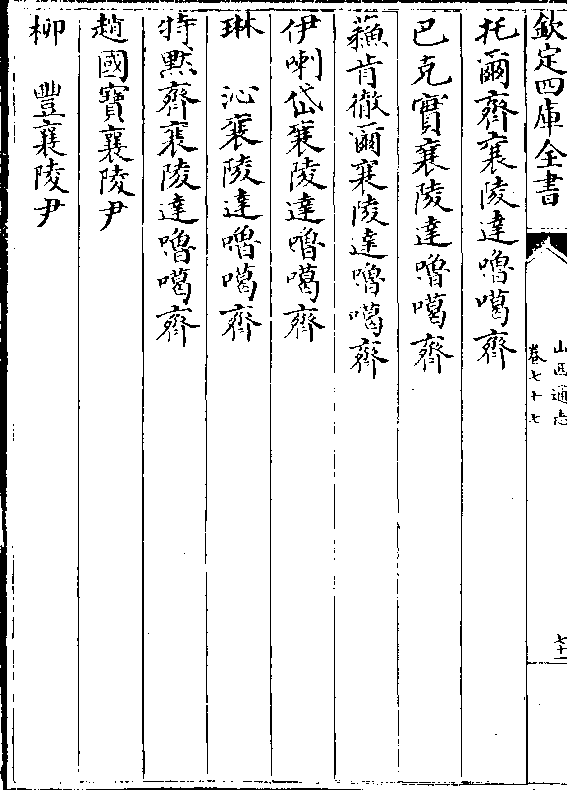 欽定四庫全書
山西通志
卷七十七
七十一
托爾齊襄陵達嚕噶齊
巴克實襄陵達嚕噶齊
蘓肯徹爾襄陵達嚕噶齊
伊喇岱襄陵達嚕噶齊
琳沁襄陵達嚕噶齊
特黙齊襄陵達嚕噶齊
趙國寶襄陵尹
柳豐襄陵尹